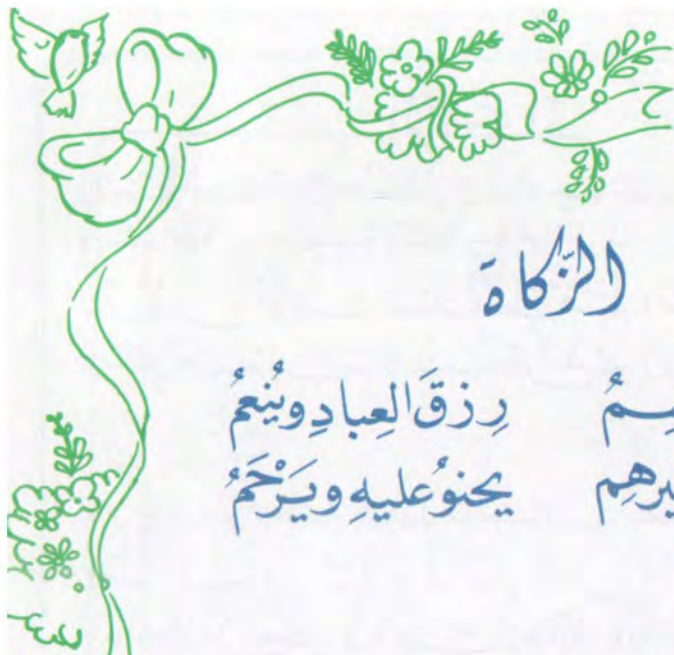 الزَّكاة
رِزقَ العِبادِ ويُنعِمُ
يحنوُ عليهِ ويَرْحَمُ